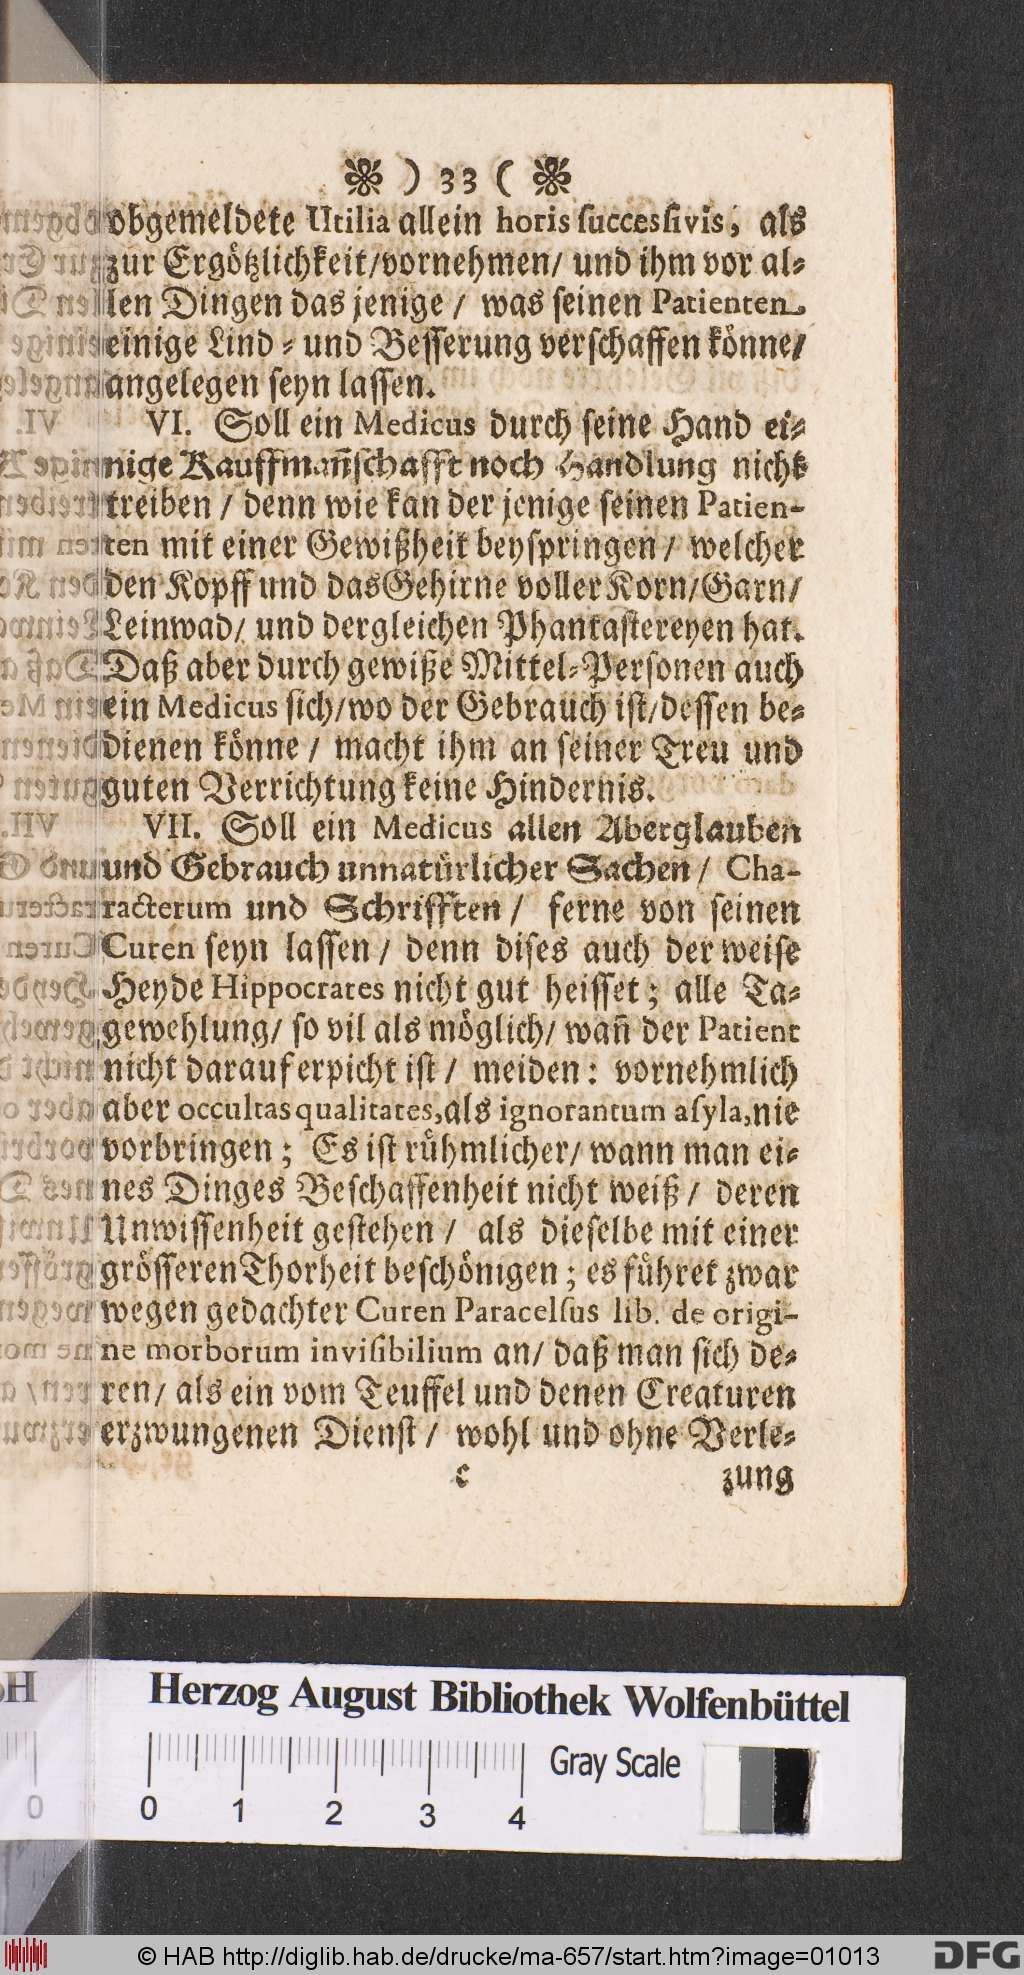 ) 33 (
obgemeldete Utilia allein horis ſuccesſivis, als
zur Ergötzlichkeit/vornehmen/ und ihm vor al⸗
len Dingen das jenige / was ſeinen Patienten
einige Lind ⸗ und Beſſerung verſchaffen könne/
angelegen ſeyn laſſen.
VI. Soll ein Medicus durch ſeine Hand ei⸗
nige Kauffmañſchafft noch Handlung nicht
treiben / denn wie kan der jenige ſeinen Patien-
ten mit einer Gewißheit beyſpringen / welcher
den Kopff und das Gehirne voller Korn/Garn/
Leinwad/ und dergleichen Phantaſtereyen hat.
Daß aber durch gewiße Mittel⸗Perſonen auch
ein Medicus ſich/wo der Gebrauch iſt/deſſen be⸗
dienen könne / macht ihm an ſeiner Treu und
guten Verrichtung keine Hindernis.
VII. Soll ein Medicus allen Aberglauben
und Gebrauch unnatürlicher Sachen / Cha-
racterum und Schrifften / ferne von ſeinen
Curen ſeyn laſſen / denn diſes auch der weiſe
Heyde Hippocrates nicht gut heiſſet ; alle Ta⸗
gewehlung/ ſo vil als möglich/ wañ der Patient
nicht darauf erpicht iſt / meiden : vornehmlich
aber occultas qualitates, als ignorantum aſyla, nie
vorbringen ; Es iſt rühmlicher/ wann man ei⸗
nes Dinges Beſchaffenheit nicht weiß / deren
Unwiſſenheit geſtehen / als dieſelbe mit einer
gröſſeren Thorheit beſchönigen ; es führet zwar
wegen gedachter Curen Paracelſus lib. de origi-
ne morborum inviſibilium an/ daß man ſich de⸗
ren/ als ein vom Teuffel und denen Creaturen
erzwungenen Dienſt / wohl und ohne Verle⸗
c zung
Herzog August Bibliothek Wolfenbüttel
Gray Scale
0 0 1 2 3 4
© HAB http://diglib.hab.de/drucke/ma-657/start.htm?image=01013
DFG